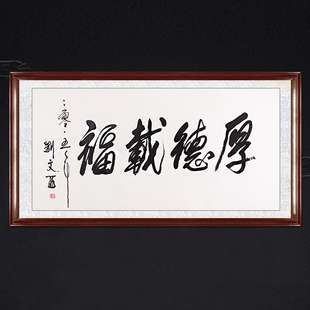 厚德載福
二零一五年
劉文西